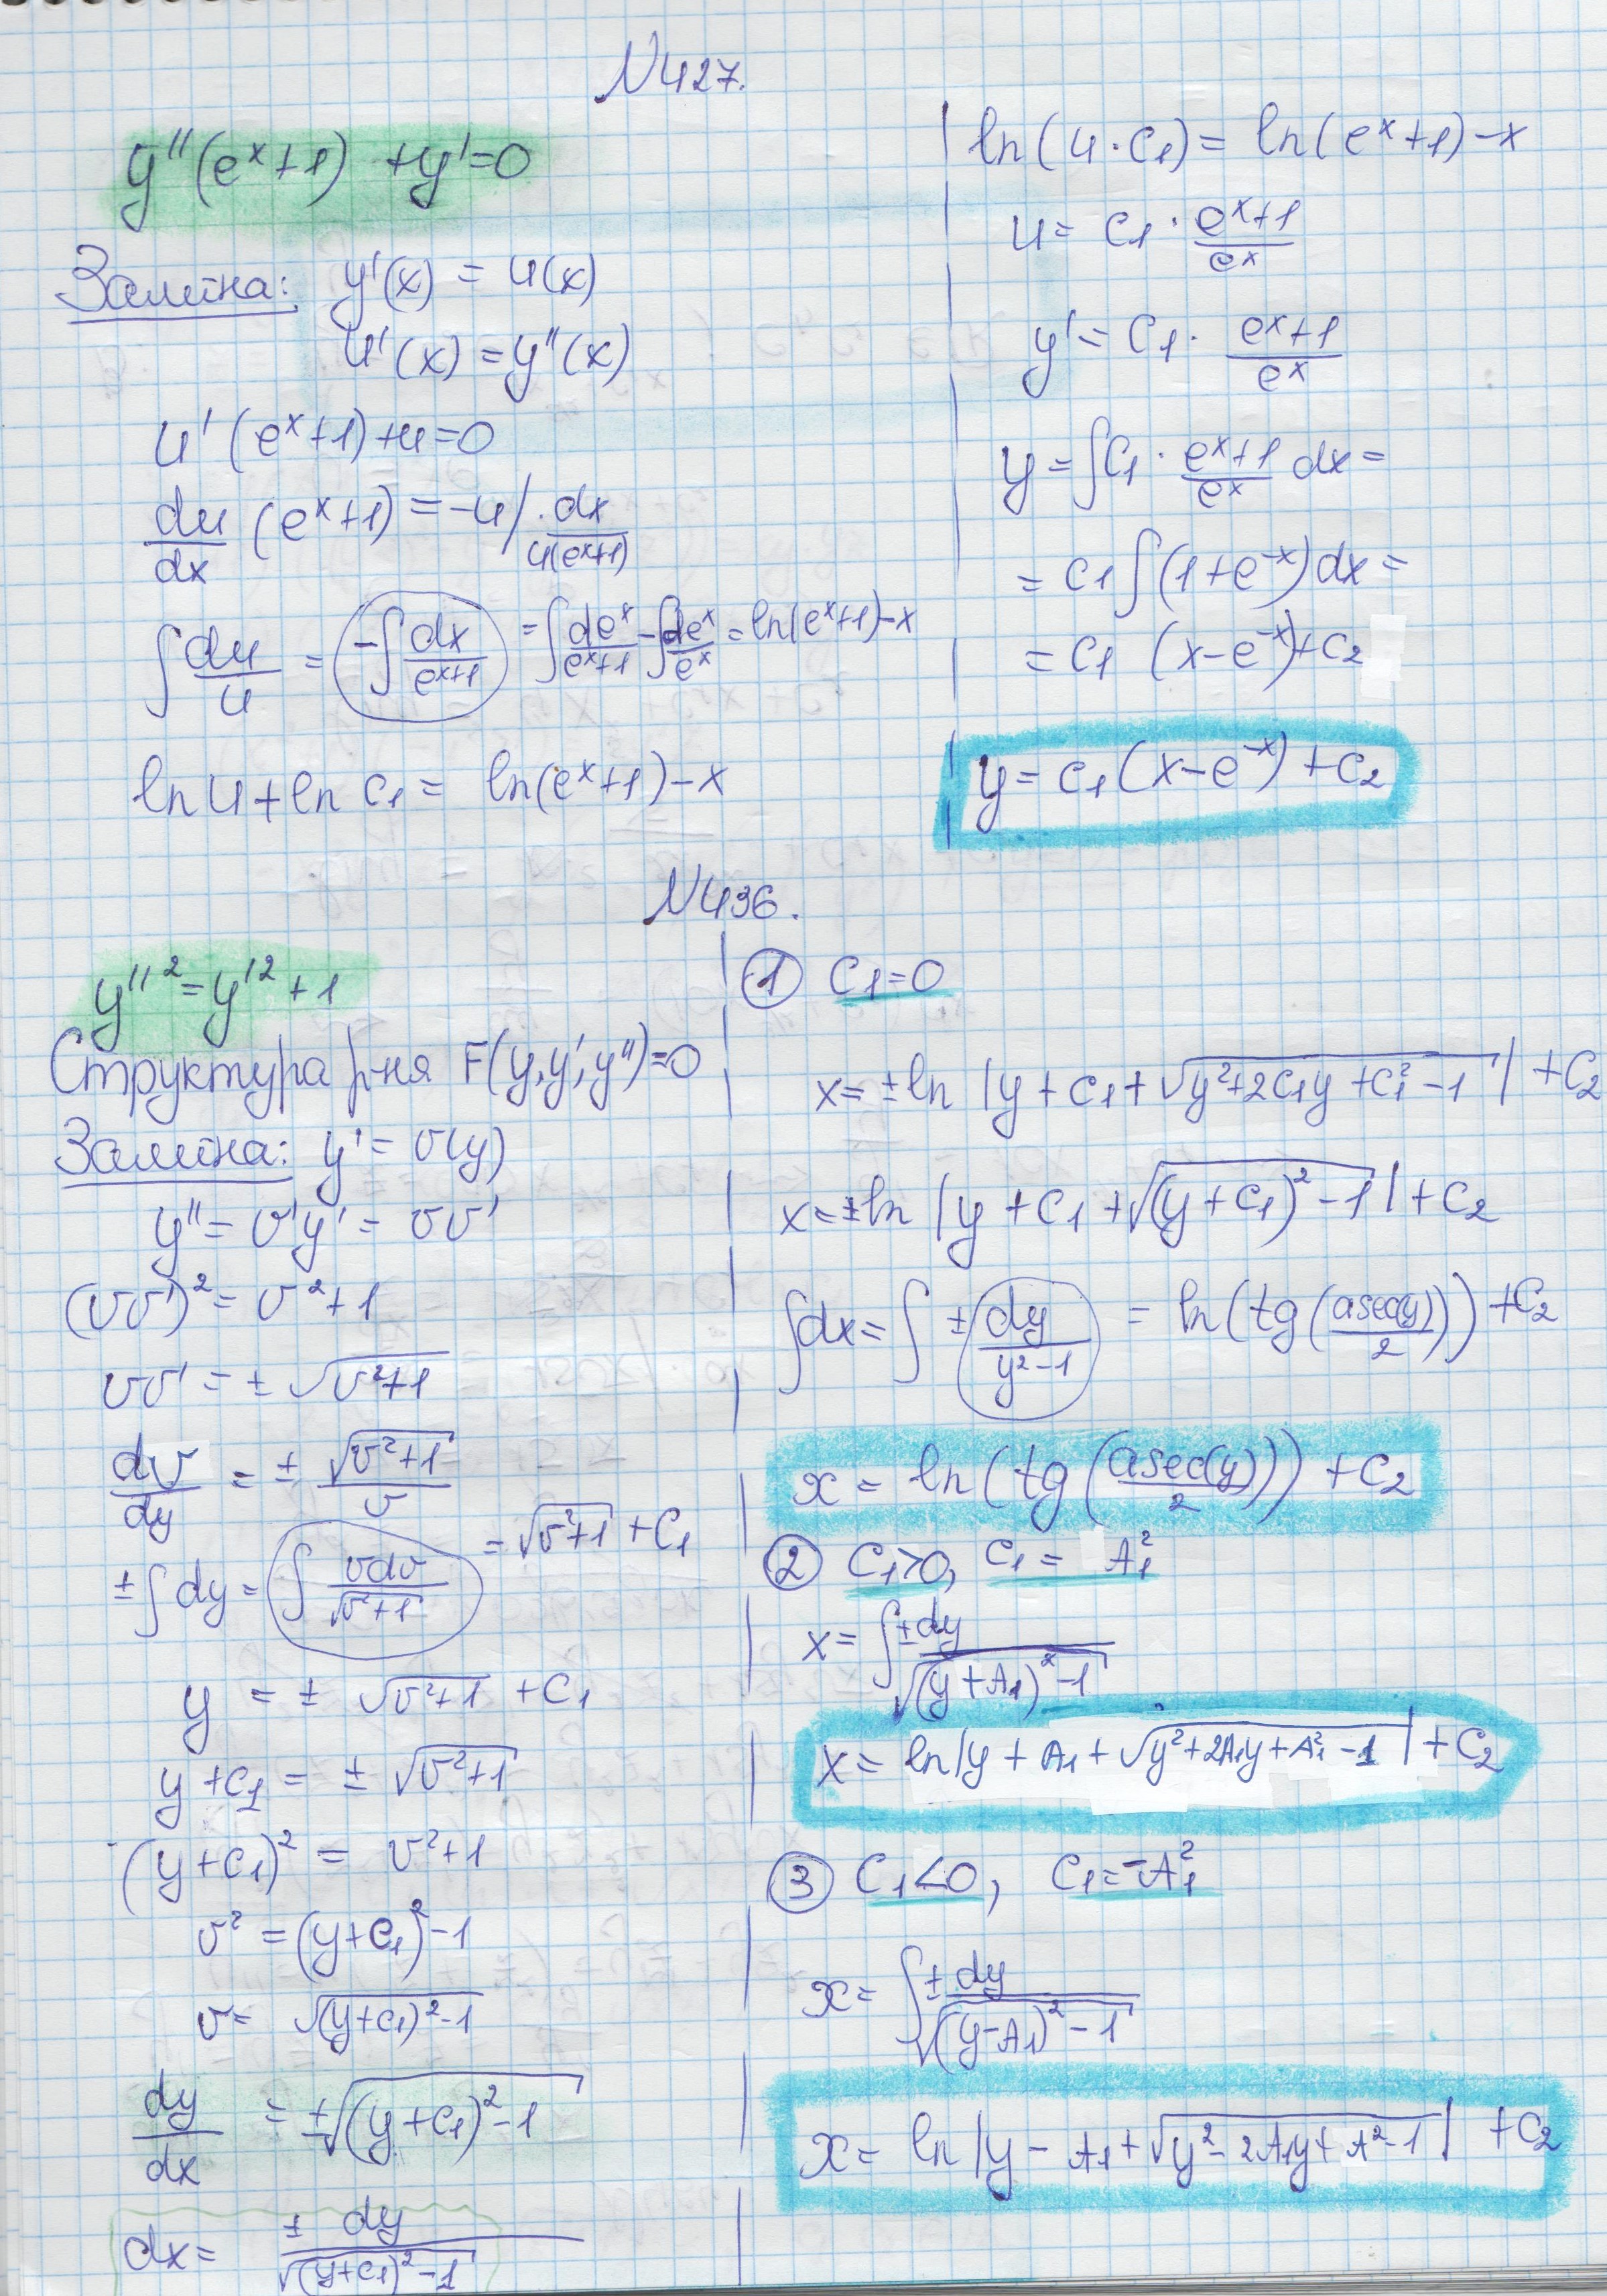 №427.
y''(eˣ+1) +y'=0
Заміна: y'(x) = u(x)
u'(x) = y''(x)
u'(eˣ+1)+u=0
du/dx (eˣ+1) = -u / · dx/u(eˣ+1)
∫ du/u = -∫ dx/(eˣ+1) = ∫ deˣ/(eˣ+1) - ∫ deˣ/eˣ = ln(eˣ+1)-x
ln u + ln c₁ = ln(eˣ+1)-x
ln(u·c₁) = ln(eˣ+1)-x
u = c₁ · (eˣ+1)/eˣ
y' = c₁ · (eˣ+1)/eˣ
y = ∫c₁ · (eˣ+1)/eˣ dx =
= c₁ ∫(1+e⁻ˣ)dx =
= c₁ (x-e⁻ˣ)+c₂
y = c₁(x-e⁻ˣ)+c₂
№436.
y''² = y'² + 1
Структура р-ня F(y,y',y'')=0
Заміна: y' = v(y)
y'' = v'y' = vv'
(vv')² = v²+1
vv' = ± √(v²+1)
dv/dy = ± √(v²+1)/v
±∫dy = ∫ vdv/√(v²+1) = √(v²+1) + c₁
y = ± √(v²+1) + c₁
y + c₁ = ± √(v²+1)
(y+c₁)² = v²+1
v² = (y+c₁)²-1
v = √((y+c₁)²-1)
dy/dx = ±√((y+c₁)²-1)
dx = ± dy/√((y+c₁)²-1)
① c₁=0
x = ±ln |y + c₁ + √(y²+2c₁y+c₁²-1)| + c₂
x = ±ln |y + c₁ + √((y+c₁)²-1)| + c₂
∫dx = ∫ ± dy/(y²-1) = ln(tg(asec(y)/2)) + c₂
x = ln(tg(asec(y)/2)) + c₂
② c₁>0, c₁ = A₁²
x = ∫ ±dy/√((y+A₁)²-1)
x = ln|y + A₁ + √(y²+2A₁y+A₁²-1)| + c₂
③ c₁<0, c₁=-A₁²
x = ∫ ± dy/√((y-A₁)²-1)
x = ln|y - A₁ + √(y²-2A₁y+A²-1)| + c₂